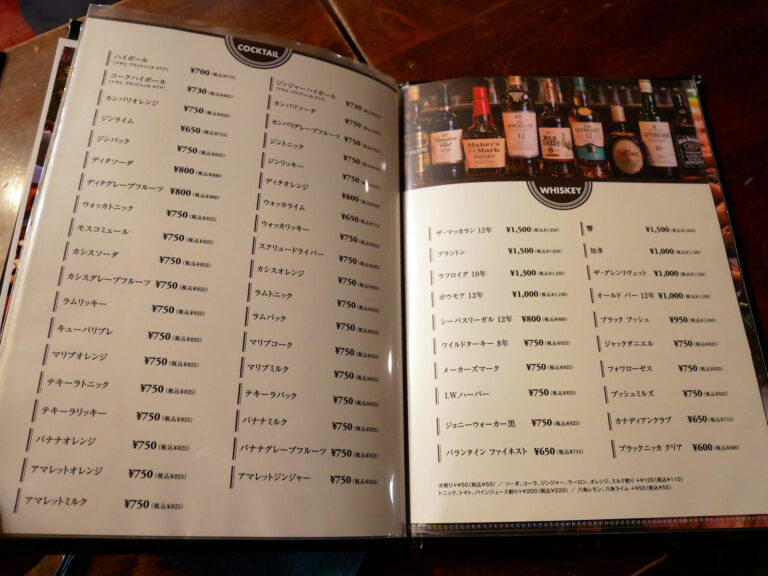 COCKTAIL
ハイボール ¥700(税込¥770)
コークハイボール ¥730(税込¥803)
カンパリオレンジ ¥750(税込¥825)
ジンライム ¥650(税込¥715)
ジンバック ¥750(税込¥825)
ディタソーダ ¥800(税込¥880)
ディタグレープフルーツ ¥800(税込¥880)
ウォッカトニック ¥750(税込¥825)
モスコミュール ¥750(税込¥825)
カシスソーダ ¥750(税込¥825)
カシスグレープフルーツ ¥750(税込¥825)
ラムリッキー ¥750(税込¥825)
キューバリブレ ¥750(税込¥825)
マリブオレンジ ¥750(税込¥825)
テキーラトニック ¥750(税込¥825)
テキーラリッキー ¥750(税込¥825)
バナナオレンジ ¥750(税込¥825)
アマレットオレンジ ¥750(税込¥825)
アマレットミルク ¥750(税込¥825)
ジンジャーハイボール ¥730
カンパリソーダ ¥750
カンパリグレープフルーツ ¥750
ジントニック ¥750
ジンリッキー ¥750
ディタオレンジ ¥800
ウォッカライム ¥650
ウォッカリッキー ¥750(税込¥825)
スクリュードライバー ¥750(税込¥825)
カシスオレンジ ¥750(税込¥825)
ラムトニック ¥750(税込¥825)
ラムバック ¥750(税込¥825)
マリブコーク ¥750(税込¥825)
マリブミルク ¥750(税込¥825)
テキーラバック ¥750(税込¥825)
バナナミルク ¥750(税込¥825)
バナナグレープフルーツ ¥750(税込¥825)
アマレットジンジャー ¥750(税込¥825)
Maker's
Mark
MACALLAN
12
WILD
TURKEY
8
GLENLIVET
12
LAPHROAIG
10
JACK
DANIEL'S
WHISKEY
ザ・マッカラン 12年 ¥1,500(税込¥1,650)
ブラントン ¥1,500(税込¥1,650)
ラフロイグ 10年 ¥1,300(税込¥1,430)
ボウモア 12年 ¥1,000(税込¥1,100)
シーバスリーガル 12年 ¥800(税込¥880)
ワイルドターキー 8年 ¥750(税込¥825)
メーカーズマーク ¥750(税込¥825)
I.W.ハーパー ¥750(税込¥825)
ジョニーウォーカー黒 ¥750(税込¥825)
バランタイン ファイネスト ¥650(税込¥715)
響 ¥1,500(税込¥1,650)
知多 ¥1,000(税込¥1,100)
ザ・グレンリヴェット ¥1,000(税込¥1,100)
オールド パー 12年 ¥1,000(税込¥1,100)
ブラック ブッシュ ¥950(税込¥1,045)
ジャックダニエル ¥750(税込¥825)
フォアローゼス ¥750(税込¥825)
ブッシュミルズ ¥750(税込¥825)
カナディアンクラブ ¥650(税込¥715)
ブラックニッカ クリア ¥600(税込¥660)
水割り+¥50(税込¥55) / ソーダ、コーラ、ジンジャー、ウーロン、オレンジ、ミルク割り +¥100(税込¥110)
トニック、トマト、パインジュース割り+¥200(税込¥220) / 八角レモン、八角ライム +¥50(税込¥55)